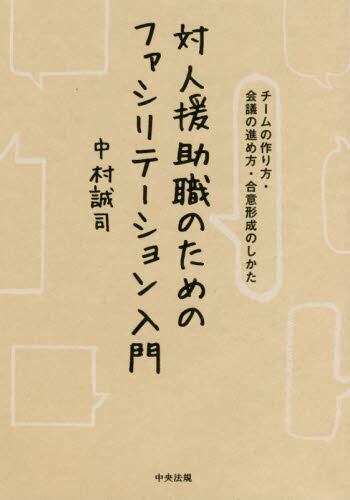 チームの作り方・
会議の進め方・合意形成のしかた
対人援助職のための
ファシリテーション入門
中村誠司
中央法規